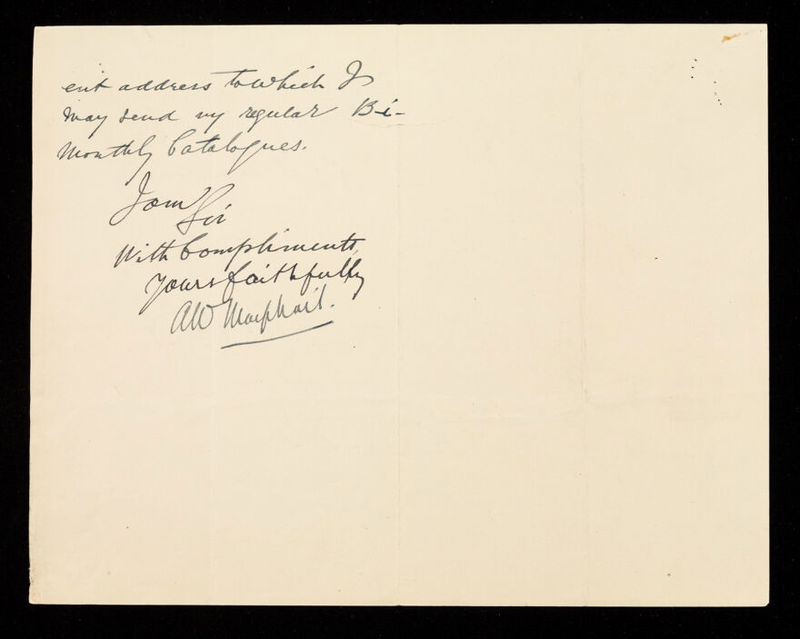 ent address to which I
may send my regular Bi-
Monthly Catalogues.
I am
Sir
With Compliments
Yours faithfully
AW Macphail.